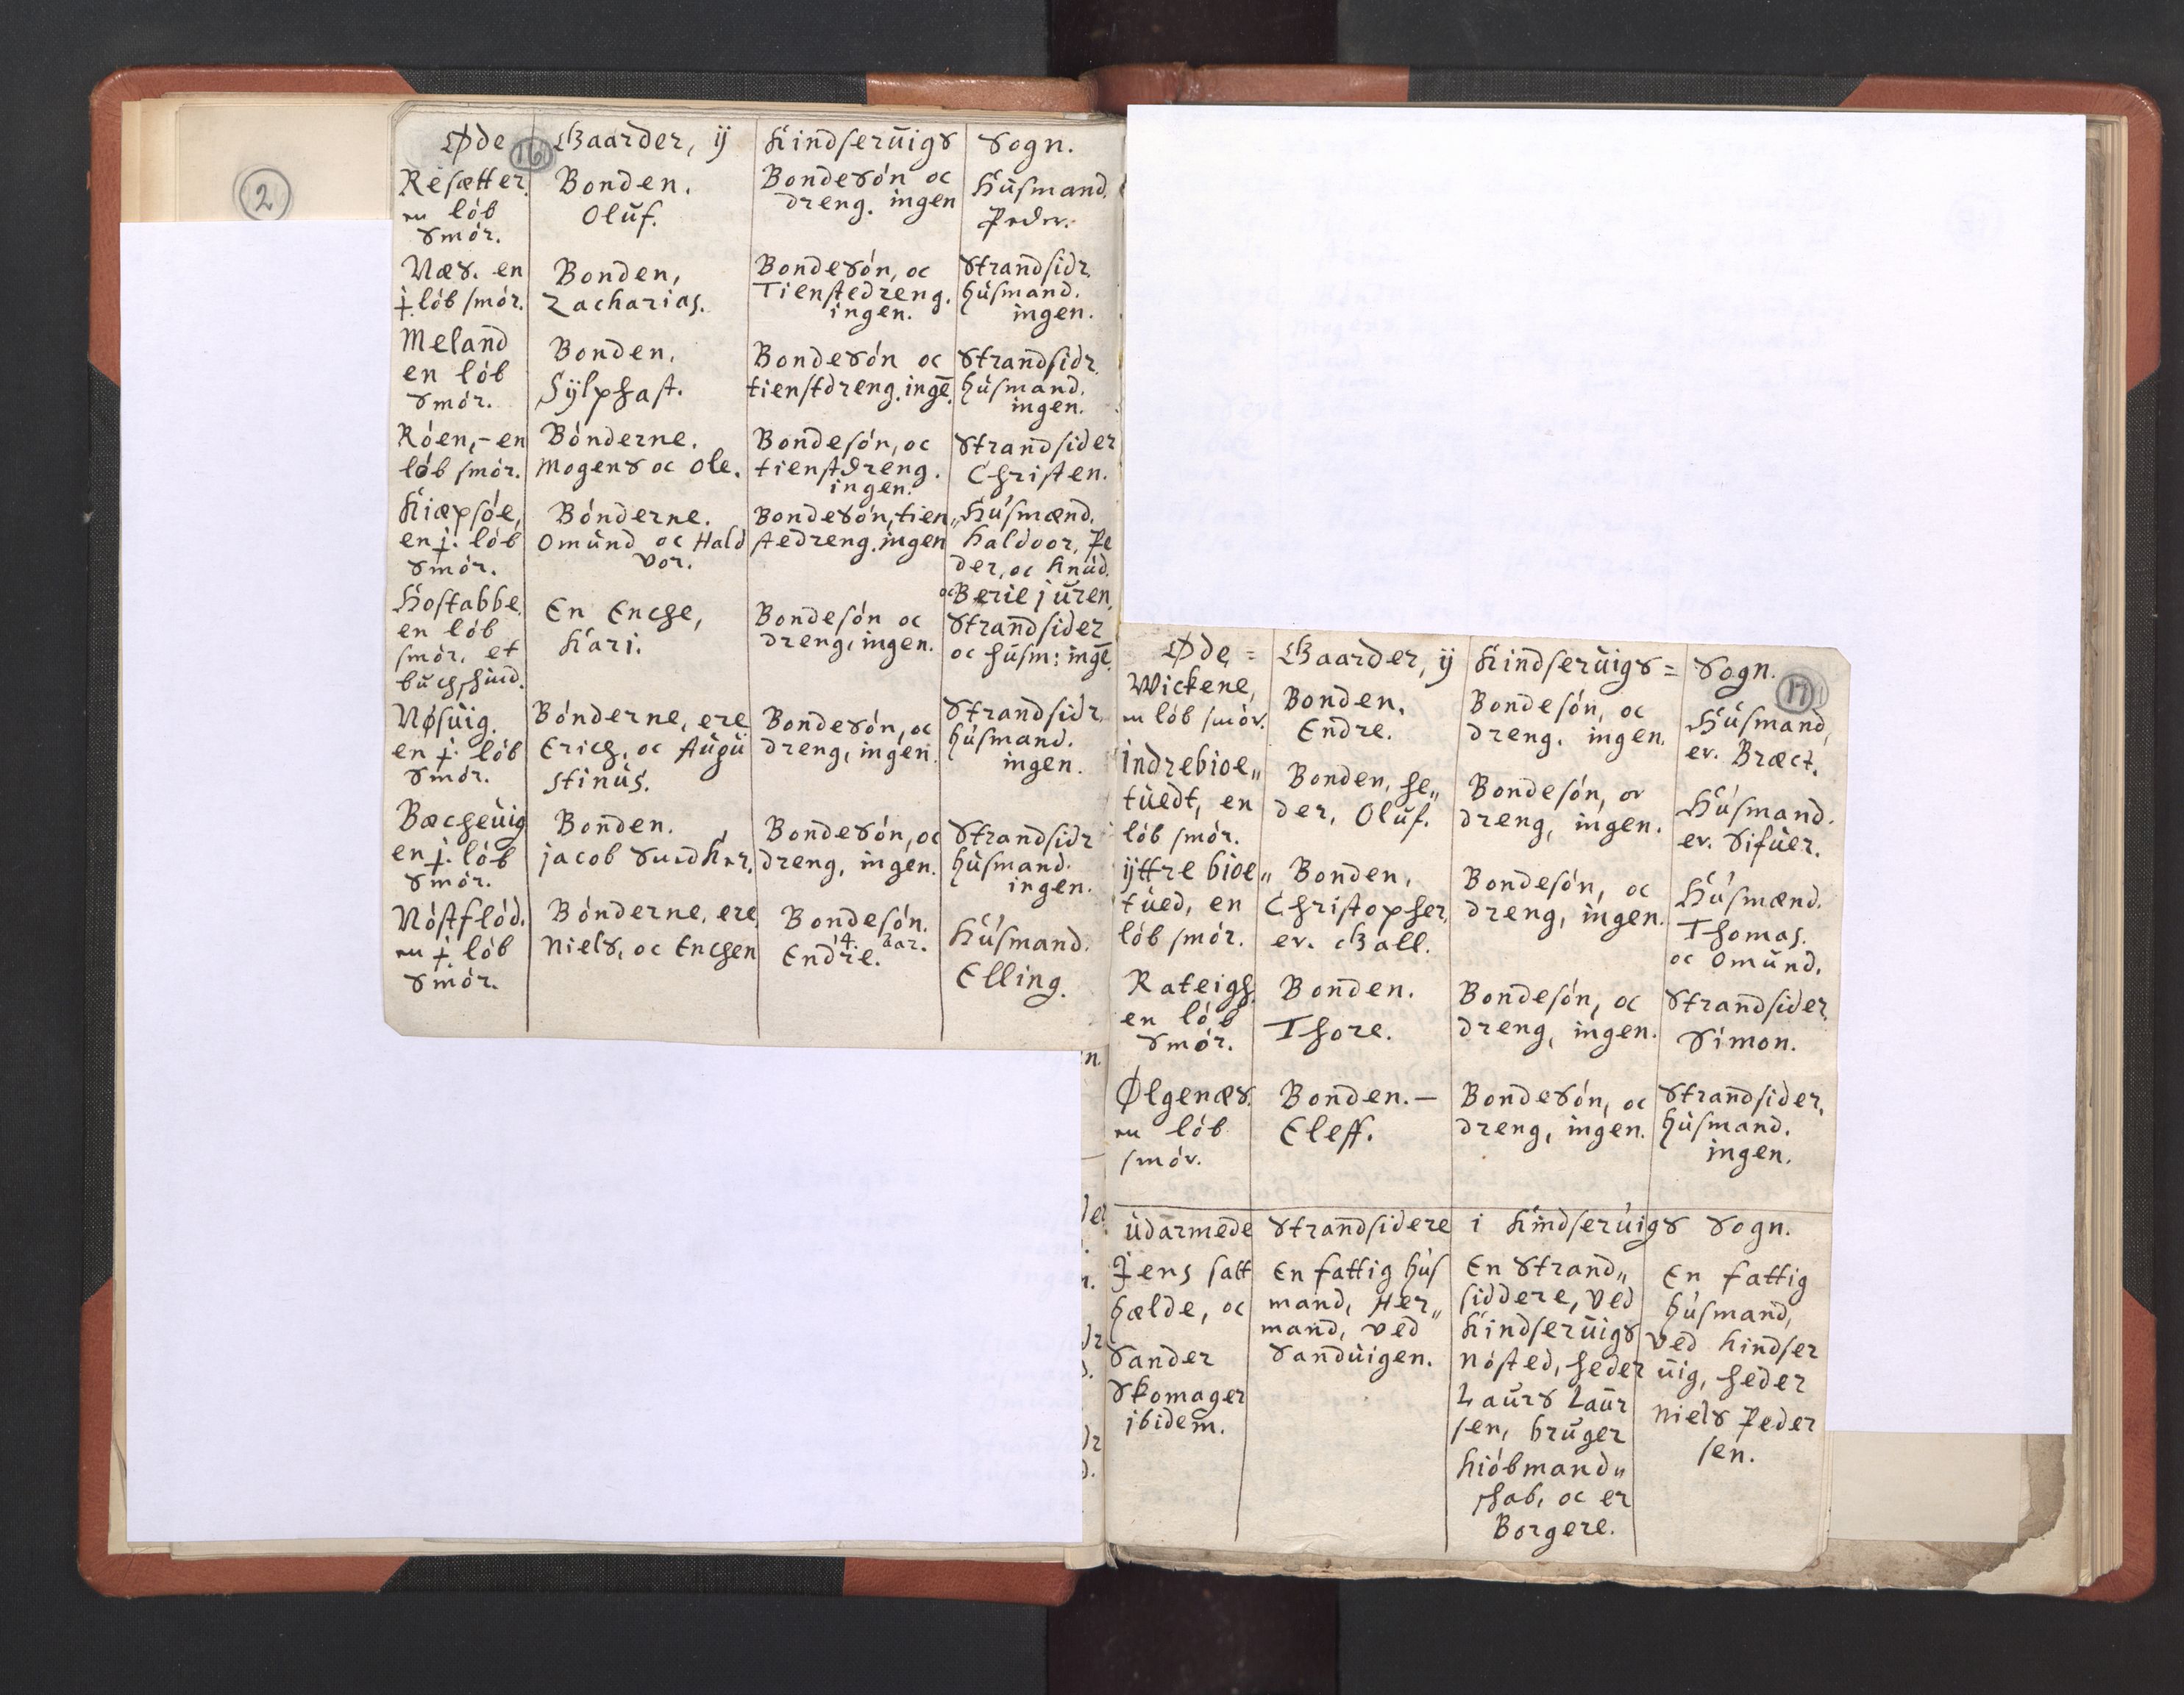 2
16
Øde Gaarder, ij Kindseruigs Sogn.
Resætter.
en lób
Smór.
Bonden.
Oluf.
Bondesón oc
dreng. ingen
Húsmand.
Peder.
Næs. en
j. lób smór.
Bonden,
Zacharias.
Bondesón, oc
Tienstedreng.
ingen.
Strandsidr.
húsmand.
ingen.
Meland
en lób
Smór.
Bonden.
Sÿlphast.
Bondesón oc
tienstdreng. inge.
Strandsidr.
húsmand.
ingen.
Róen,- en
lób smór.
Bónderne.
Mogens oc Ole.
Bondesón, oc
tienstdreng.
ingen.
Strandsider
Christen.
Kiæpsóe,
en j. lób
Smór.
Bónderne.
Omund oc Hald
vor.
Bondesón, tien„
stedreng. ingen
Húsmænd.
Haldoor, Pe
der, oc Knud.
oc Berie juren,
Kostabbe.
en lób
smór, et
buchshud.
En Enche,
Kari.
Bondesón oc
dreng, ingen.
Strandsider
oc husm: inge.
Nøsuig.
en j. lób
Smór.
Bónderne, ere
Erich, oc Augu
stinus.
Bondesón, oc
dreng, ingen.
Strandsidr.
húsmand.
ingen.
Bacheuig
en j. lób
Smór.
Bonden.
jacob
Bondesón, oc
dreng, ingen.
Strandsidr
húsmand.
ingen.
Nóstflód.
en j. lób
Smór.
Bónderne, ere
Niels, oc Enchen
Bondesón.
14. aar.
Endre.
Húsmand.
Elling.
17
Øde = Gaarder, ij Kindseruigs = Sogn.
Wickene,
en lób smór.
Bonden.
Endre.
Bondesón, oc
dreng. ingen.
Húsmand,
er. Bræct.
Indrebioe„
tuedt, en
lób smór.
Bonden, he„
der, Oluf.
Bondesón, oc
dreng, ingen.
Húsmand.
er. Sifuer.
ÿttre bioe„
tued, en
lób smór.
Bonden,
Christopher,
er. Gall.
Bondesón, oc
dreng, ingen.
Húsmænd.
Thomas.
oc Omund.
Rateigh.
en lób
Smór.
Bonden.
Thore.
Bondesón, oc
dreng, ingen.
Strandsider
Simon.
Ølgenæs.
en lób
smór.
Bonden.-
Eleff.
Bondesón, oc
dreng, ingen.
Strandsider,
húsmand.
ingen.
udarmede Strandsidere i Kindseruigs Sogn.
Jens satt
hælde, oc
Sander
Skomager
ibidem.
En fattig hús
mand, Her„
mand, ved
Sanduigen.
En Strand„
siddere, ved
Kindseruigs
nósted, heder
Laurs Laur
sen, bruger
kióbmand„
shab, oc er
Borgere.
En fattig
húsmand,
ved Kindser
uig, heder
Niels Peder
sen.